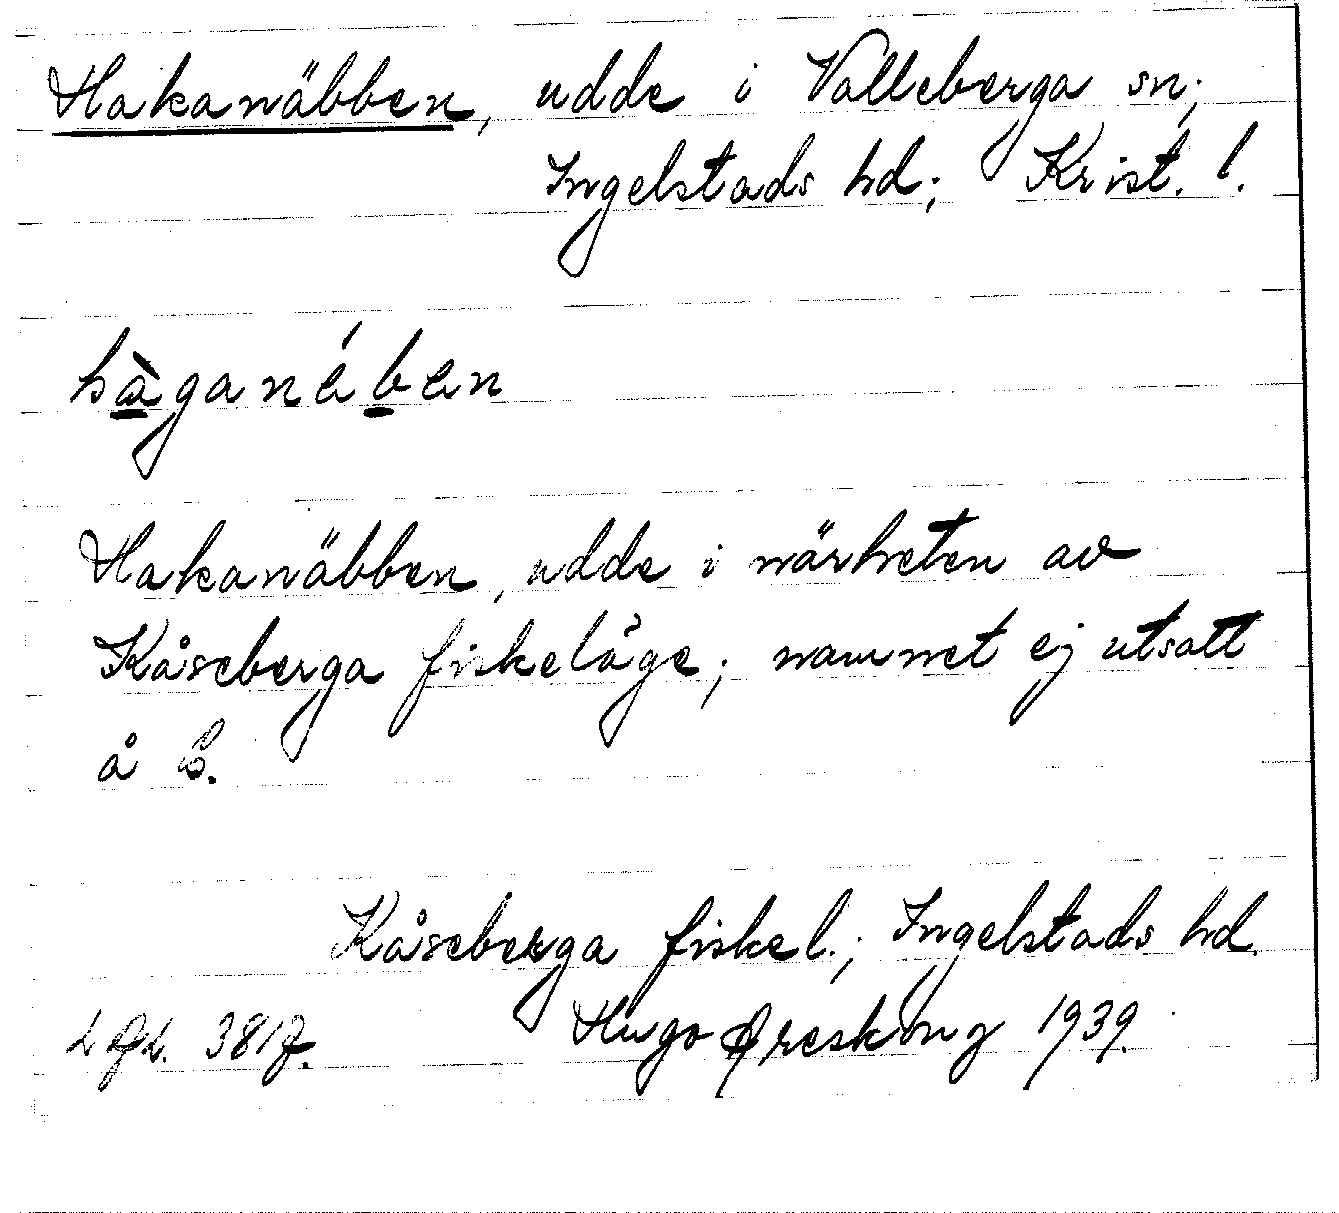 Hakanäbben, udde i Valleberga sn;
Ingelstads hd; Krist. l.
hàganében
Hakanäbben, udde i närheten av
Kåseberga fiskeläge; namnet ej utsatt
å
Kåseberga fiskel.; Ingelstads hd.
3817. Hugo Areskoug 1939.